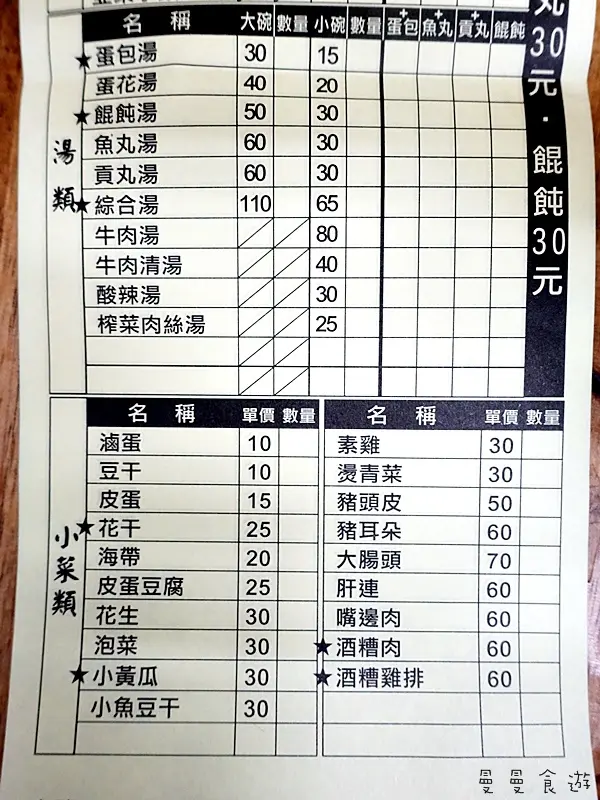 名 稱 大碗 數量 小碗 數量 +蛋包 +魚丸 +貢丸 餛飩
★蛋包湯 30 15
蛋花湯 40 20
★餛飩湯 50 30
魚丸湯 60 30
貢丸湯 60 30
★綜合湯 110 65
牛肉湯 80
牛肉清湯 40
酸辣湯 30
榨菜肉絲湯 25
湯類
丸30元·餛飩30元
小菜類
名 稱 單價 數量
滷蛋 10
豆干 10
皮蛋 15
★花干 25
海帶 20
皮蛋豆腐 25
花生 30
泡菜 30
★小黃瓜 30
小魚豆干 30
名 稱 單價 數量
素雞 30
燙青菜 30
豬頭皮 50
豬耳朵 60
大腸頭 70
肝連 60
嘴邊肉 60
★酒糟肉 60
★酒糟雞排 60
曼曼食遊